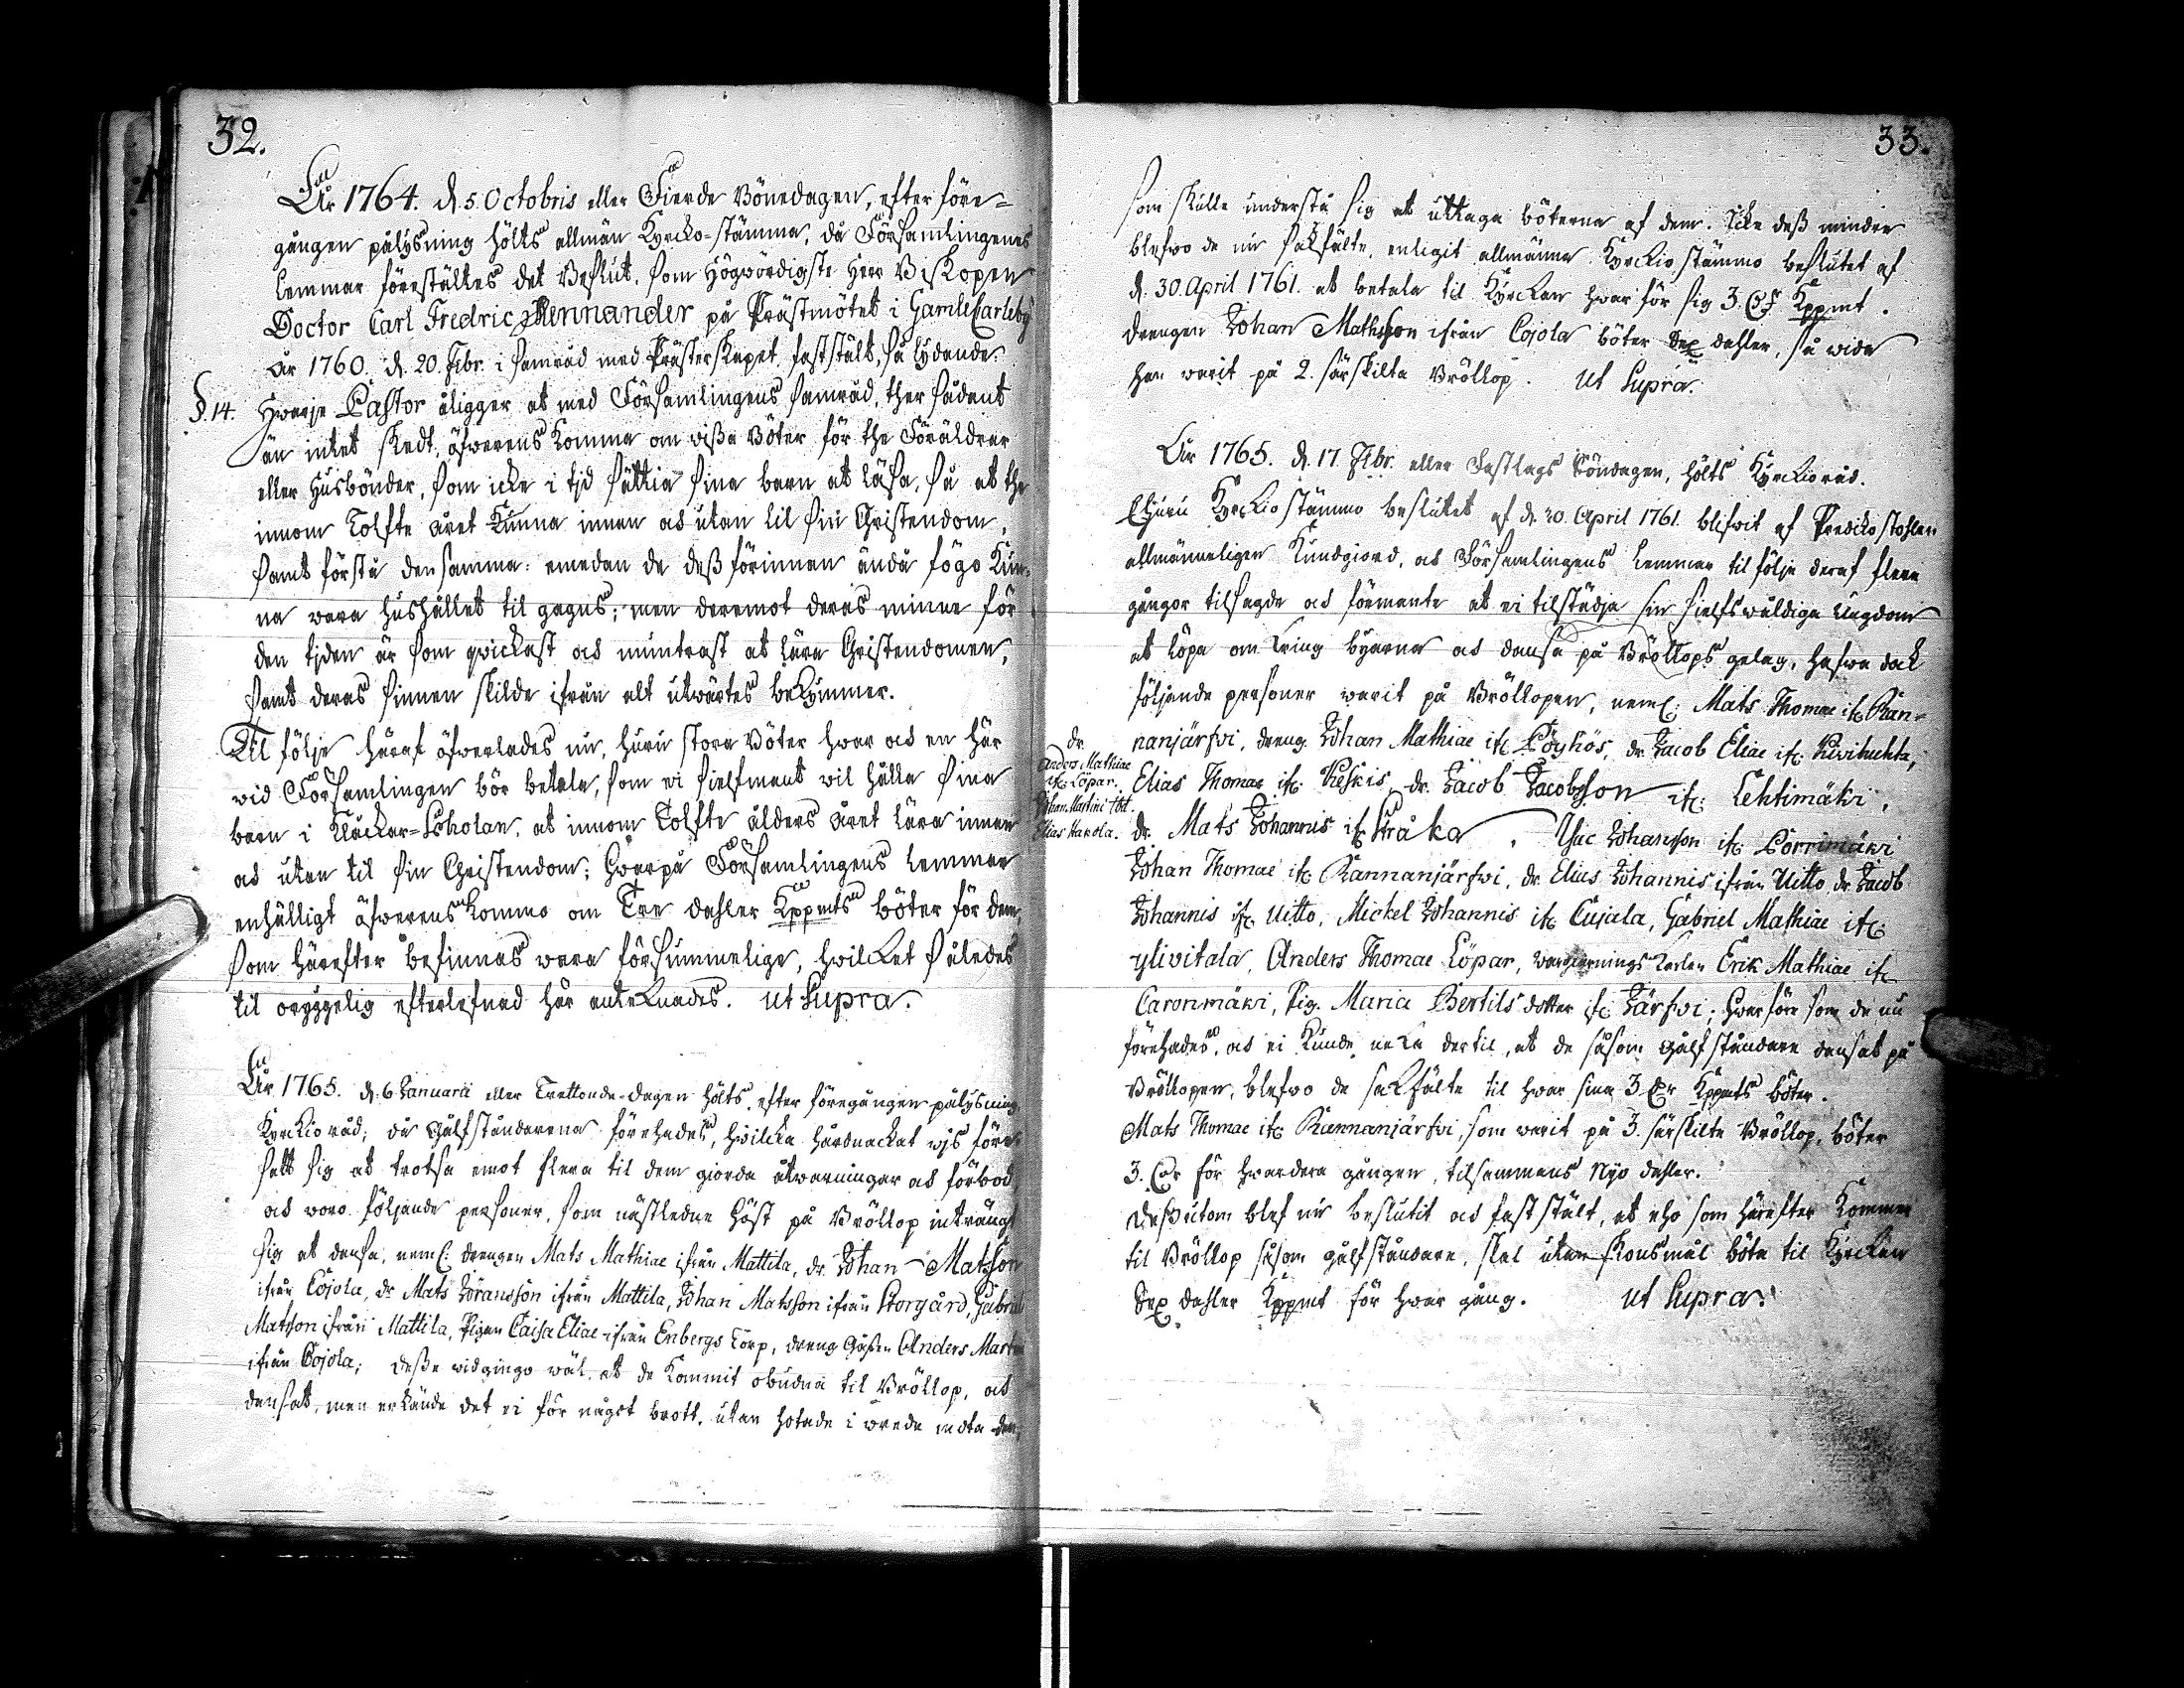 32.
År 1764. d. 5. Octobris eller Fierde Bönedagen, efter före-
gången pålysning hölts allmän Kyrcko-stämma, då Församlingenes
Lemmar förestältes det Beslut, som Högwördigste Herr Biskopen
Doctor Carl Fredric Mennander på Prästmötet i GamleCarleby
år 1760. d. 20. Febr. i samråd med Prästerskapet fastställt, så lydande:
§. 14. Hwarje Pastor åligger at med Församlingens samråd, ther sådant
än intet skedt, öfwerens komma om wißa Böter för the Föräldrar
eller Husbönder, som icke i tjd sättia sina barn at läsa, så at the
innom Tolfte året kunna innan och utan til sin Christendom,
samt förstå den samma: emedan de deß förinnan ändå fögo kun-
na wara hushållet til gagns; men deremot deras minne för
den tjden är som qwickast och muntrast at lära Christendomen,
samt deras sinnen skilde ifrån alt utwärtes bekymmer.
Til följe häraf öfwerlades nu, huru stora Böter hwar och en här
wid Församlingen bör betala, som ei sielfmant wil hålla sina
barn i Klåckar-Scholan, at innom Tolfte ålders året lära innan
och utan til sin Christendom; Hwarpå Församlingens Lemmar
enhälligt öfwerens kommo om Tre daler Kppmts böter för dem,
som härefter befinnas wara försummelige, hwilcket således
til oryggelig efterlefnad här antecknades. Ut Supra.
År 1765. d. 6. Januarii eller Trettonde-dagen hölts, efter föregången pålysning
Kyrckio råd; då Gålfståndarena förehades, hwilcka hårdnackat wjs före-
satt sig at trotsa emot flera til dem giorda åtwarningar och förbod,
och woro följande personer, som nästledne höst på Bröllop inträngt
sig at dansa, neml: drengen Mats Mathiae ifrån Mattila, dr. Johan Matsson
ifrån Cojola, dr. Mats Jöransson ifrån Mattila, Johan Matsson ifrån Storgård, Gabriel
Matsson ifrån Mattila, Pigan Caisa Eliae ifrån Enbergs Torp, dreng Gåßen Anders Martini
ifrån Cojola; deße widgingo wäl, at de kommit obudna til Bröllop, och
dansat, men erkände det ei för något brott, utan hotade i wrede möta den,
33.
som skulle understå sig at uttaga böterna af dem. Icke deß mindre
blefwo de nu sakfälte, enligit allmänna Kyrckio stämmo beslutet af
d. 30. April 1761. at betala til Kyrckan hwar för sig 3. Dr Kppmt.
Drengen Johan Mathsson ifrån Cojola böter Sex daler, så wida
han warit på 2. särskilta Bröllop. Ut Supra.
År 1765. d. 17. Febr. eller Fastlags Söndagen, hölts Kyrckioråd.
Ehuru Kyrckio stämmo beslutet af d. 30. April 1761. blifwit af Predikostohlen
allmänneligen Kundgiord, och Församlingens Lemmar til följe deraf flere
gångor tilsagde och förmante at ei tilstädja sin sielfswåldiga Ungdom
at löpa om kring byarna och dansa på Bröllops gelag, hafwa dock
följande personer warit på Bröllopen, neml: Mats Thomae ifr. Ran-
nanjärfwi, dreng. Johan Mathiae ifr. Pöyhös, dr. Jacob Eliae ifr. Kivihuhta,
dr. Anders Mathiae
ifr. Löpar.
Johan Martini
Elias Harola.
Elias Thomae ifr. Keskis, dr. Jacob Jacobsson ifr: Lehtimäki,
dr. Mats Johannis ifr. Stråka, Isac Johansson ifr. Porrimäki
Johan Thomae ifr. Rannanjärfwi, dr. Elias Johannis ifrån Uitto, dr. Jacob
Johannis ifr. Uitto, Mickel Johannis ifr. Cujala, Gabriel Mathiae ifr.
Ylivitala, Anders Thomae Löpar, Wargierings karlen Erik Mathiae ifr.
Caronmäki, Pig. Maria Bertils dotter ifr. Järfwi; Hwarföre som de nu
förehades, och ei kunde neka dertil, at de såsom Gålfståndare dansat på
Bröllopen, blefwo de sakfälte til hwar sina 3. Dr Kppmts böter.
Mats Thomae ifr. Rannanjärfwi, som warit på 3. särskilta Bröllop, böter
3. Dr för hwardera gången, tilsammans Nijo daler.
Deßutom blef nu beslutit och fastställt, at eho som härefter kommer
til Bröllop såsom gålfståndare, skal utan skonsmål böta til Kyrckan
Sex daler Kppmt för hwar gång. Ut Supra.